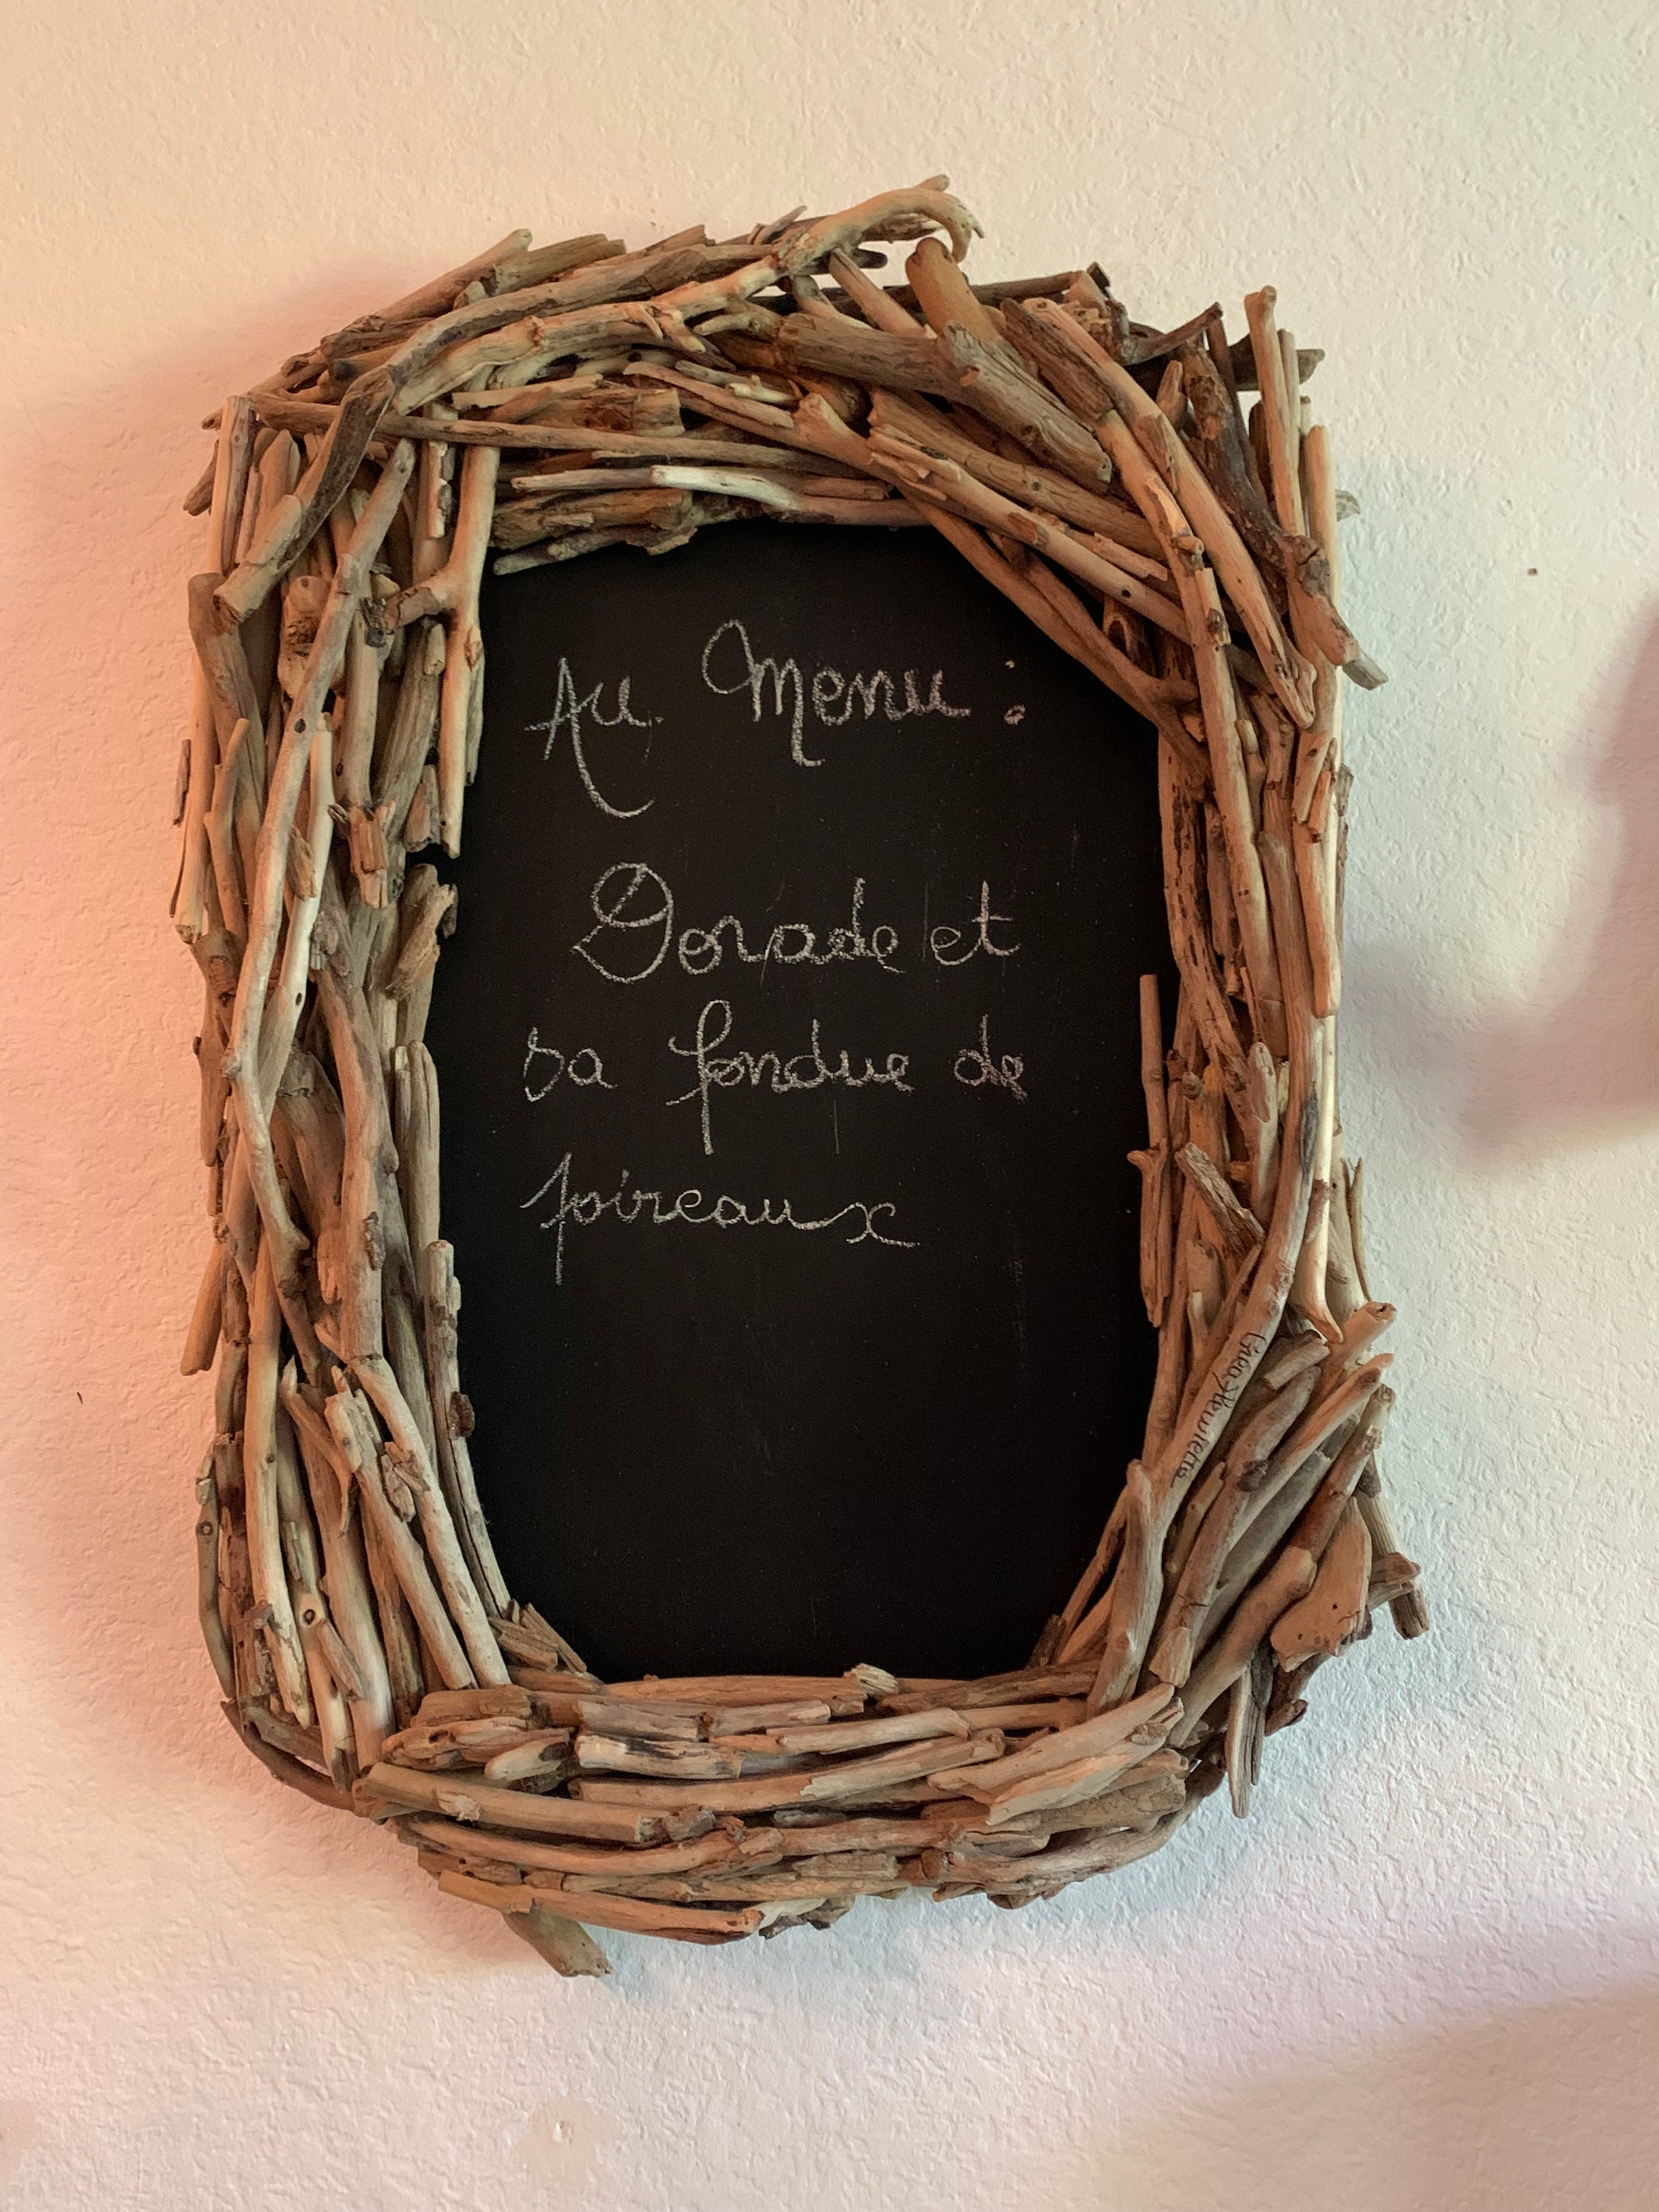 Au Menu :
Dorade et
sa fondue de
poireaux